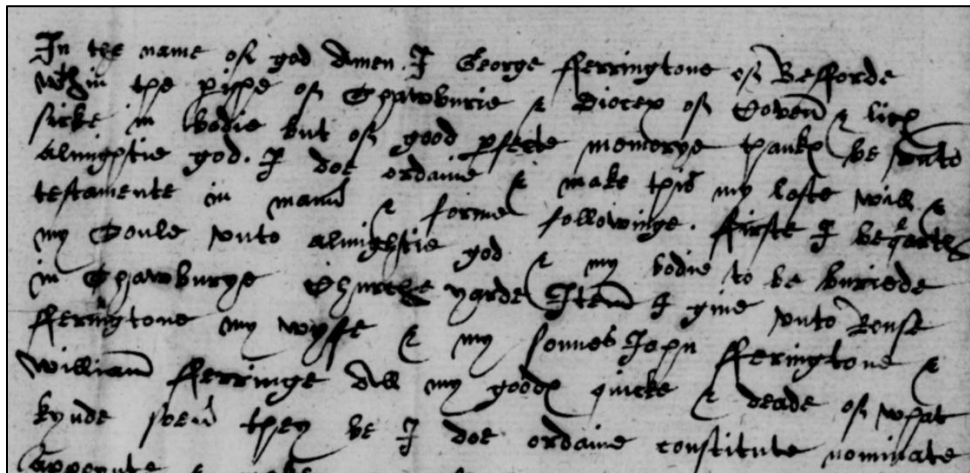 In the name of god Amen. I George fferringtone of Befforde
wthin the pishe of Shawburie & Dioces of Coven & lich
sicke in bodie but of good pfecte memorye thankes be unto
almightie god. I doe ordaine & make this my laste will &
testamente in mann & forme followinge. firste I bequeath
my Soule unto almightie god & my bodie to be buriede
in Shawburye Churche yarde Item I give unto
fferingtone my wyffe & my sonnes John fferingtone &
William fferringe All my goodes quicke & deade of what
kynde soeu they be I doe ordaine constitute nominate
appoynte & make